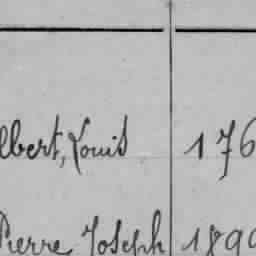 lbert, Louis 176
Pierre Joseph 189